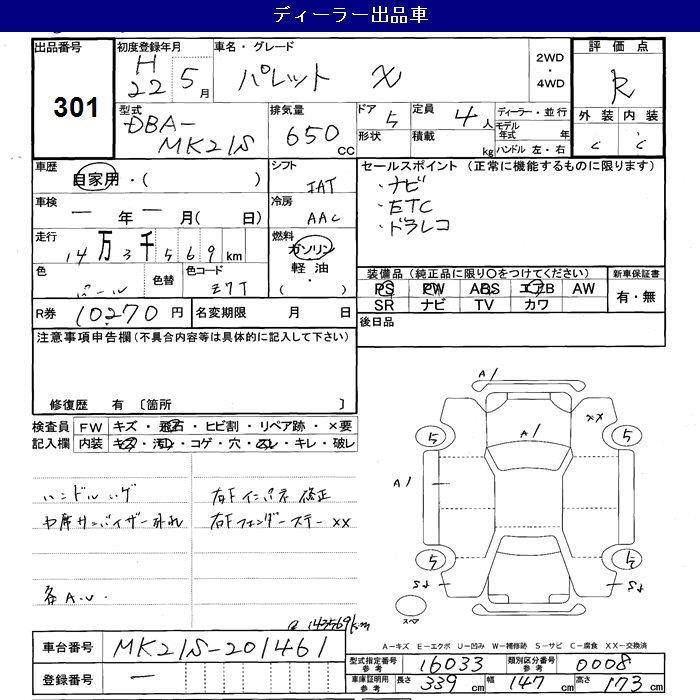 ディーラー出品車
出品番号 301
初度登録年月 H22 5月
車名・グレード パレット X
2WD・4WD
評価点 R
外装 C 内装 C
型式 DBA-MK21S
排気量 650 CC
ドア 5 形状
定員 4人 積載 kg
ディーラー・並行
モデル年式 年
ハンドル 左・右
車歴 自家用・( )
シフト IAT
セールスポイント (正常に機能するものに限ります)
・ナビ
・ETC
・ドラレコ
車検 ー年ー月( 日)
冷房 AAC
走行 14万3千569km
燃料 ガソリン 軽油 ( ・ )
色 パール 色替 色コード Z7T
装備品(純正品に限り○をつけてください) 新車保証書
PS PW ABS エアB AW 有・無
SR ナビ TV カワ
R券 10270円 名変期限 月 日
後日品
注意事項申告欄(不具合内容等は具体的に記入して下さい)
修復歴 有 〔箇所 〕
検査員記入欄 FW キズ・飛石・ヒビ割・リペア跡・×要
内装 キズ・汚レ・コゲ・穴・スレ・キレ・破レ
ハンドルハゲ 右Fインパネ修正
中席サンバイザー外れ 右Fフェンダーステー ××
各A.U.
@ 143569km
A1
××
5 A1 5
A1
5 5
S1 S1
スペア
A－キズ E－エクボ U－凹み W－補修跡 S－サビ C－腐食 ××－交換済
車台番号 MK21S-201461
登録番号 ー
型式指定番号 参考 16033 類別区分番号 参考 0008
車庫証明用 参考 長さ 339cm 幅 147cm 高さ 173cm